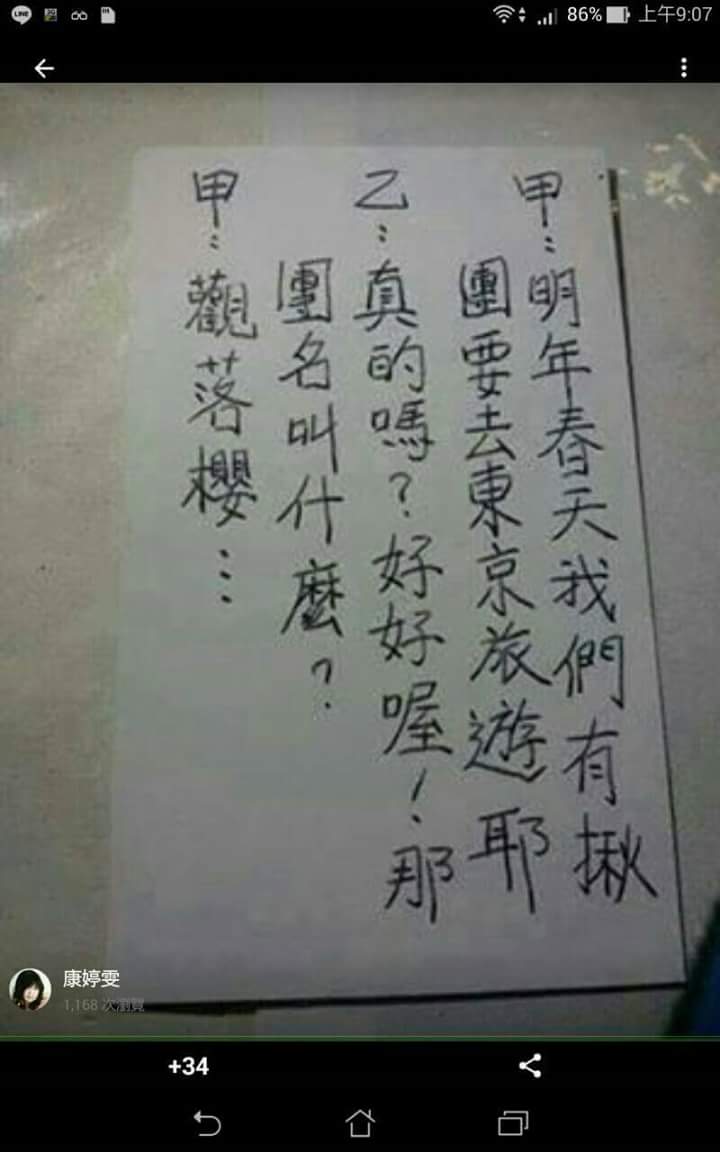 86% 上午9:07
甲：明年春天我們有揪
團要去東京旅遊耶
乙：真的嗎？好好喔！那
團名叫什麼？
甲：觀落櫻…
康婷雯
1,168 次瀏覽
+34